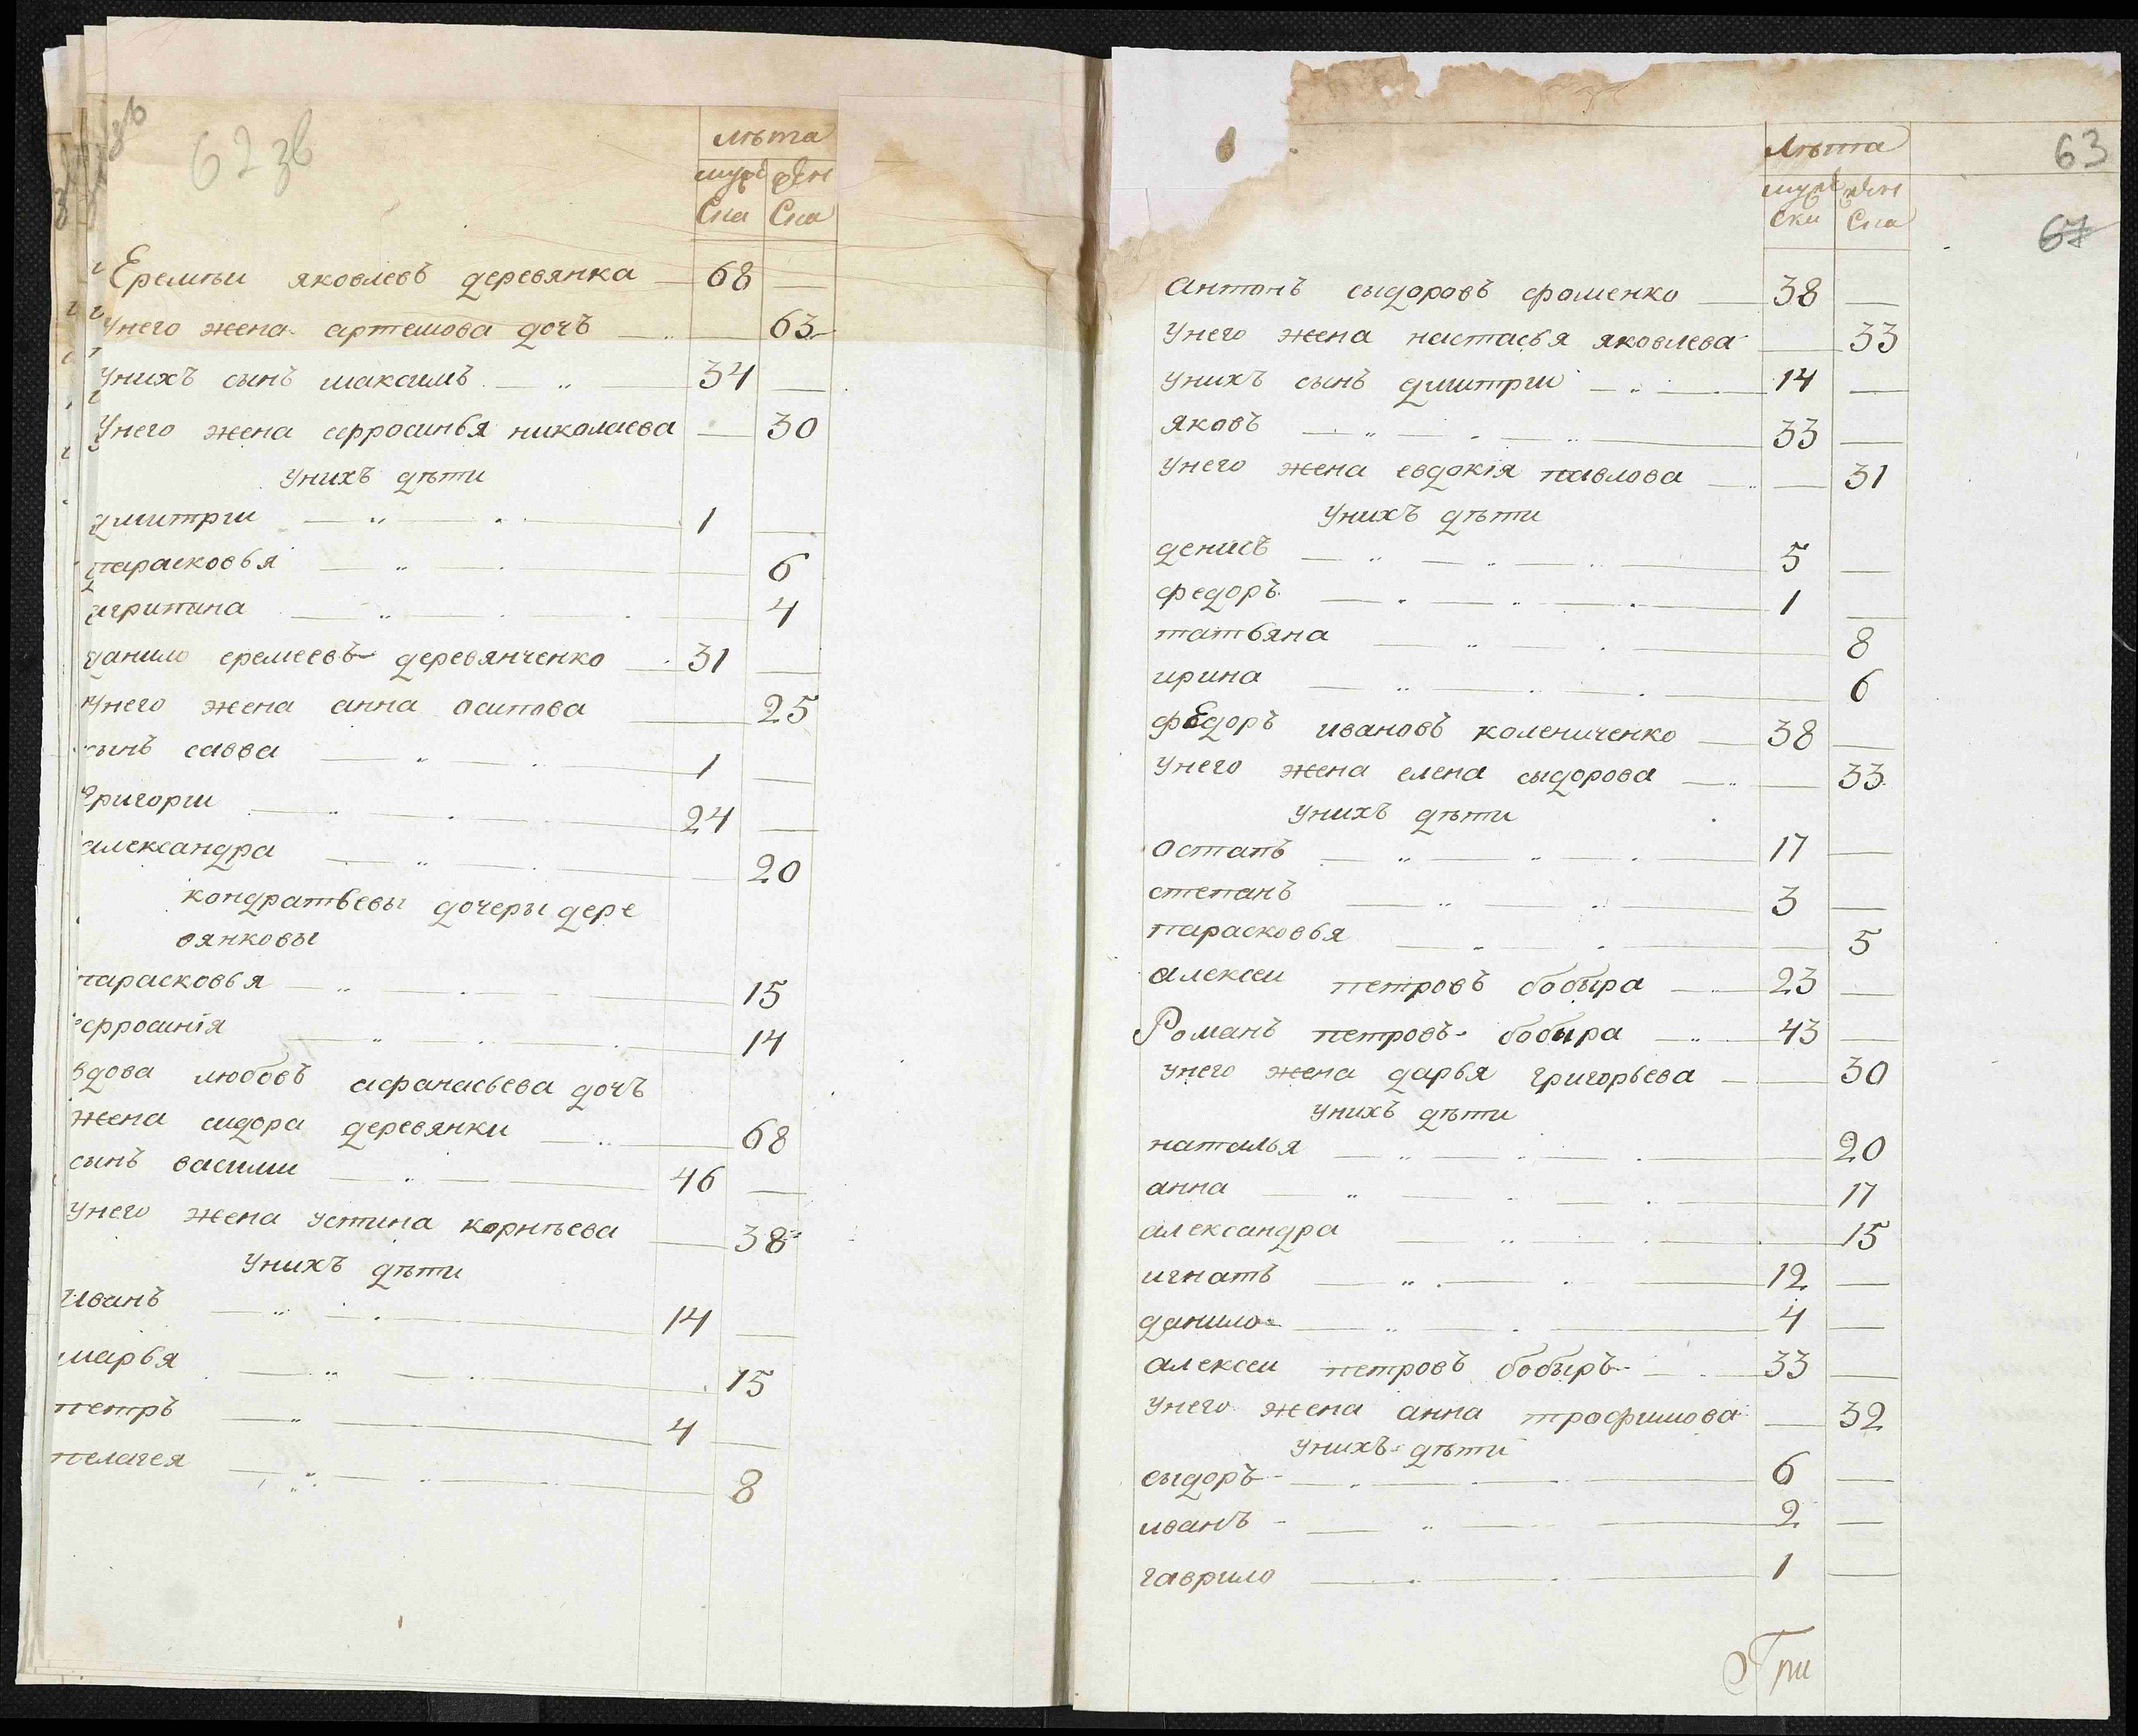 62 зв
лѣта
муж жен
ска ска
Еремѣи яковлевъ деревянка 68
Унего жена артемова дочъ 63
Унихъ сынъ максимъ 34
Унего жена ефросинья николаева 30
Унихъ дѣти
дмитрии 1
парасковья 6
агрипина 4
данило еремеевъ деревянченко 31
Унего жена анна осипова 25
сынъ савва 1
григории 24
александра 20
кондратьевы дочеры дере
вянковы
парасковья 15
ефросинія 14
вдова любовъ афанасьева дочъ
жена сидора деревянки 68
сынъ василии 46
Унего жена устина корнѣева 38
Унихъ дѣти
Иванъ 14
марья 15
петръ 4
пелагея 8
63
67
Лѣта
муж жен
ски ска
антонъ сыдоровъ фоменко 38
Унего жена настасья яковлева 33
Унихъ сынъ дмитрии 14
яковъ 33
Унего жена евдокія павлова 31
Унихъ дѣти
денисъ 5
федоръ 1
татьяна 8
ирина 6
фЕдоръ ивановъ колениченко 38
Унего жена елена сыдорова 33
Унихъ дѣти
остапъ 17
степанъ 3
парасковья 5
алексеи петровъ бобыра 23
Романъ петровъ бобыра 43
Унего жена дарья григорьева 30
Унихъ дѣти
наталья 20
анна 17
александра 15
игнатъ 12
данило 4
алексеи петровъ бобыръ 33
Унего жена анна трофимова 32
Унихъ дѣти
сыдоръ 6
иванъ 2
гаврило 1
Три